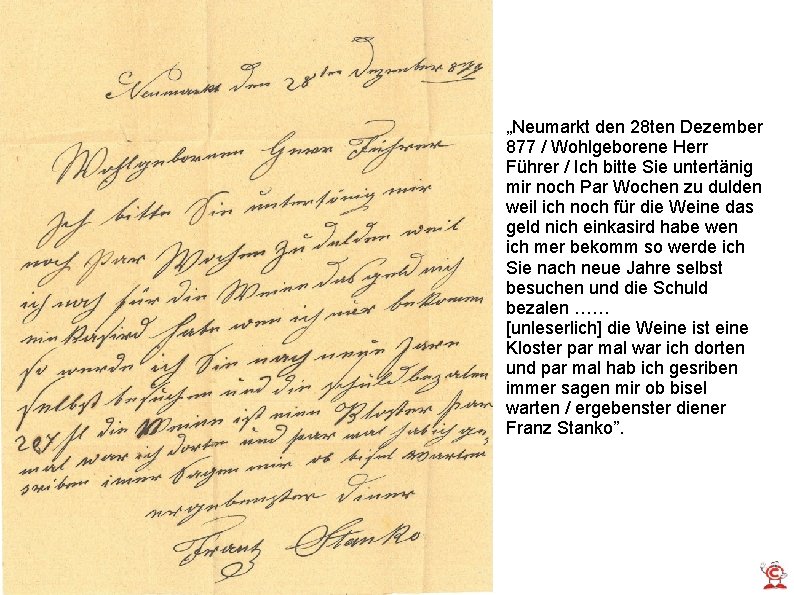 Neumarkt den 28ten Dezember 877
Wohlgeborenen Herr Führer
Ich bitte Sie untertänig mir
noch Par Wochen zu dulden weil
ich noch für die Weine das geld nich
einkasird habe wen ich mer bekomm
so werde ich Sie nach neue Jare
selbst besuchen und die Schuld bezalen
die Weine ist eine Kloster par
mal war ich dorten und par mal hab ich ge-
sriben imer sagen mir ob bisel warten
ergebenster diner
Franz Stanko
„Neumarkt den 28ten Dezember
877 / Wohlgeborene Herr
Führer / Ich bitte Sie untertänig
mir noch Par Wochen zu dulden
weil ich noch für die Weine das
geld nich einkasird habe wen
ich mer bekomm so werde ich
Sie nach neue Jahre selbst
besuchen und die Schuld
bezalen ……
[unleserlich] die Weine ist eine
Kloster par mal war ich dorten
und par mal hab ich gesriben
immer sagen mir ob bisel
warten / ergebenster diener
Franz Stanko”.